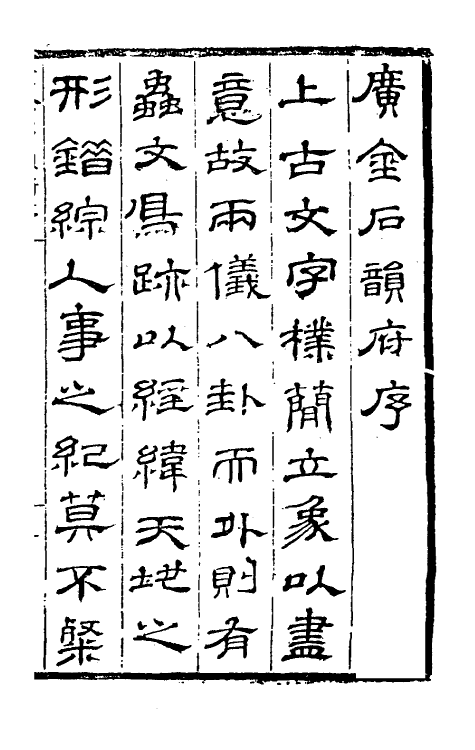 廣金石韻府序
上古文字樸簡立象以盡
意故兩儀八卦而外則有
蟲文鳥跡以經緯天地之
形錯綜人事之紀莫不粲